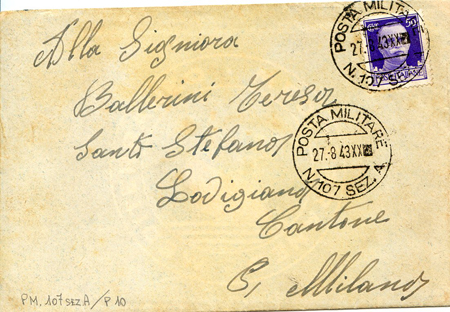 POSTA MILITARE
27.-8 43XXI
N.107 SEZ. A
50
Alla Signora
Ballerini Teresa
Santo Stefano
Lodigiano
Cantone
P, Milano
POSTA MILITARE
27.-8 43XXI
N.107 SEZ. A
PM. 107 SEZ A / P 10